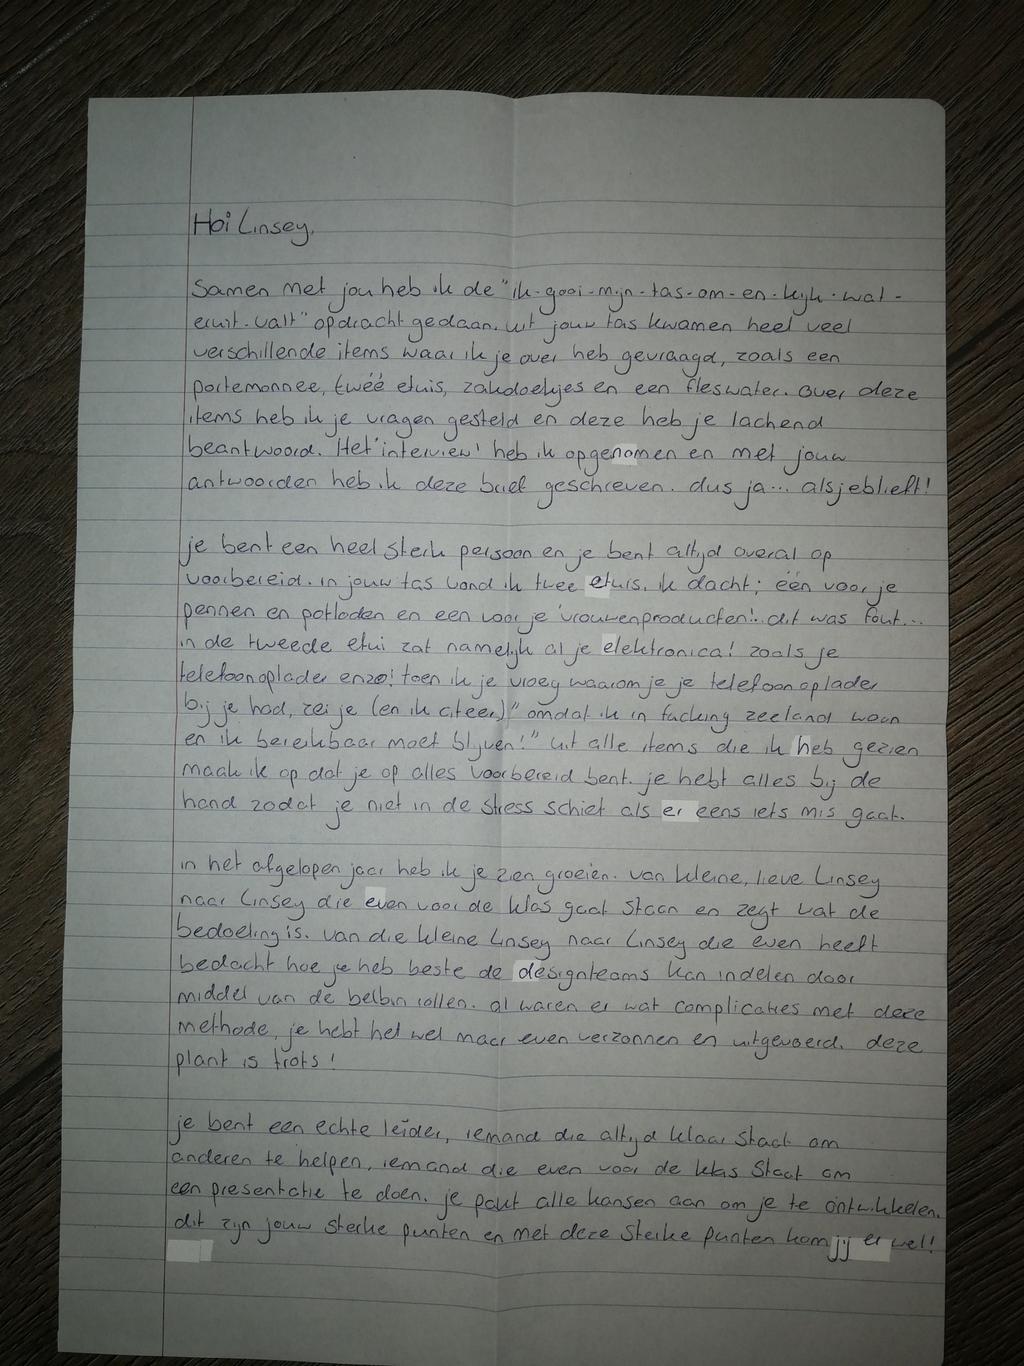 Hoi Linsey,
Samen met jou heb ik de "ik-gooi-mijn-tas-om-en-kijk-wat-
eruit-valt" opdracht gedaan. uit jouw tas kwamen heel veel
verschillende items waar ik je over heb gevraagd, zoals een
portemonnee, twéé etuis, zakdoekjes en een fles water. over deze
items heb ik je vragen gesteld en deze heb je lachend
beantwoord. Het 'interview' heb ik opgenomen en met jouw
antwoorden heb ik deze brief geschreven. dus ja... alsjeblieft!
je bent een heel sterk persoon en je bent altijd overal op
voorbereid. in jouw tas vond ik twee etuis. ik dacht; één voor je
pennen en potloden en een voor je 'vrouwenproducten'. dit was fout...
in de tweede etui zat namelijk al je elektronica! zoals je
telefoonoplader enzo! toen ik je vroeg waarom je je telefoonoplader
bij je had, zei je (en ik citeer) "omdat ik in fucking zeeland woon
en ik bereikbaar moet blijven!" uit alle items die ik heb gezien
maak ik op dat je op alles voorbereid bent. je hebt alles bij de
hand zodat je niet in de stress schiet als er eens iets mis gaat.
in het afgelopen jaar heb ik je zien groeien. van kleine, lieve Linsey
naar Linsey die even voor de klas gaat staan en zegt wat de
bedoeling is. van die kleine Linsey naar Linsey die even heeft
bedacht hoe je heb beste de designteams kan indelen door
middel van de belbin rollen. al waren er wat complicaties met deze
methode, je hebt het wel maar even verzonnen en uitgevoerd. deze
plant is trots!
je bent een echte leider, iemand die altijd klaar staat om
anderen te helpen, iemand die even voor de klas staat om
een presentatie te doen. je pakt alle kansen aan om je te ontwikkelen.
dit zijn jouw sterke punten en met deze sterke punten kom jij er wel!